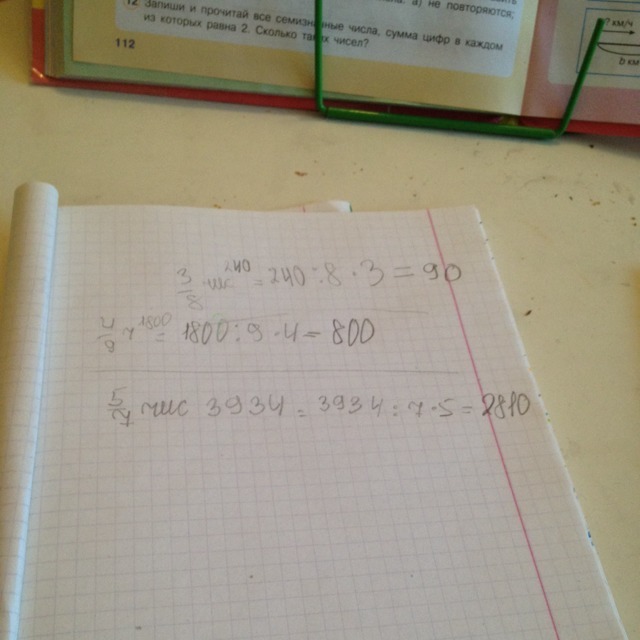 12 Запиши и прочитай все семизначные числа, сумма цифр в каждом
из которых равна 2. Сколько таких чисел?
а) не повторяются;
112
км/ч
b км
3/8 чис 240 = 240 : 8 · 3 = 90
4/9 ч 1800 = 1800 : 9 · 4 = 800
5/7 чис 3934 = 3934 : 7 · 5 = 2810